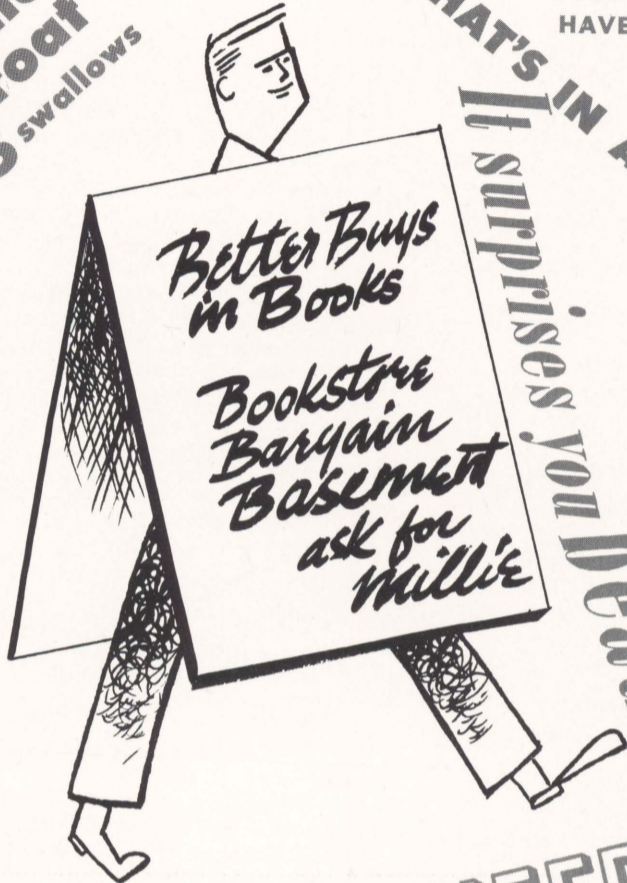 swallows
HAVE
IN
It surprises you
Better Buys
in Books
Bookstore
Bargain
Basement
ask for
Millie